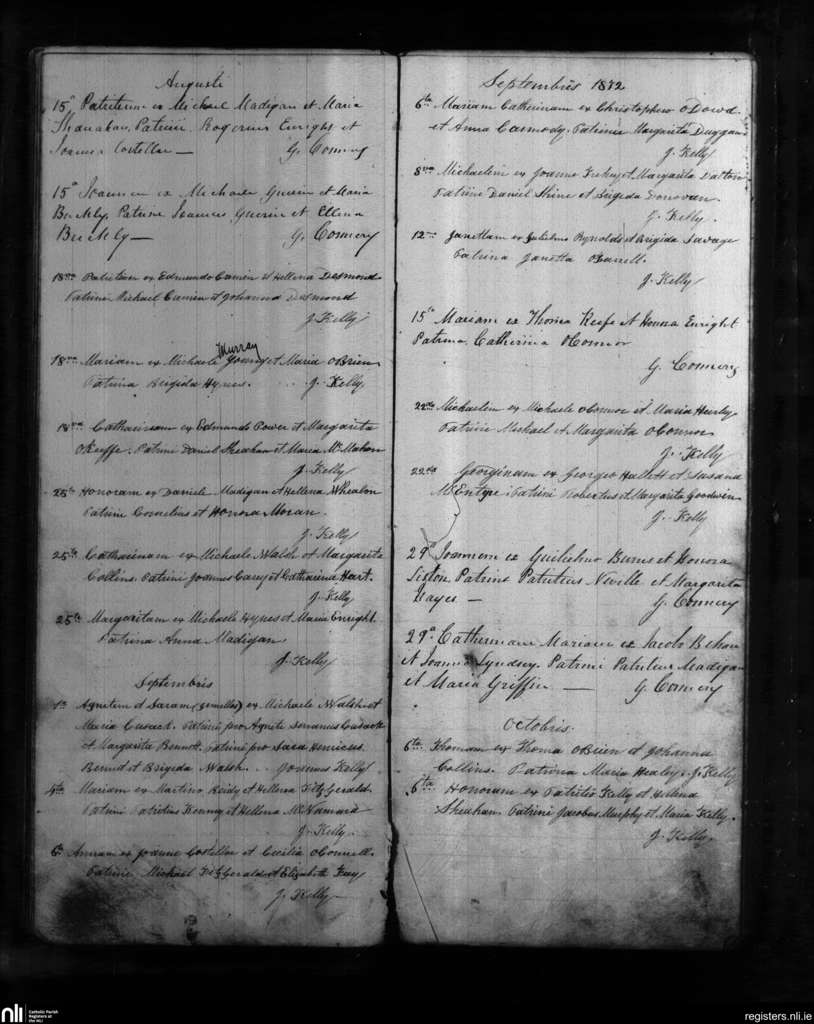 Augusti
15° Patritium ex Michael Madigan et Maria
Shanahan, Patrini Rogerus Enright et
Joanna Costelloe — G. Connery
15° Joannem ex Michaele Guerin et Maria
Buckly, Patrini Joannes Guerin et Ellena
Buckly — G. Connery
18vo Patritium ex Edmundo et Hellena Desmond
Patrini Michael et Johanna Desmond
J. Kelly
Murray
18vo Mariam ex Michaele et Maria OBrien
Patrina Brigida Hynes. J. Kelly
18vo Catharinam ex Edmundo Power et Margarita
OKeeffe. Patrini Daniel Sheahan et Maria McMahon
J. Kelly
25to Honoram ex Daniele Madigan et Hellena Whealon
Patrini Cornelius et Honora Moran.
J. Kelly
25to Catharinam ex Michaele Walsh et Margarita
Collins. Patrini Joannes Carey et Catharina Hart.
J. Kelly
25to Margaritam ex Michaele Hynes et Maria Enright
Patrina Anna Madigan
J. Kelly
Septembris
1o Agnetem et Saram (gemellas) ex Michaele Walsh et
Maria Cusack. Patrini pro Agnete Joannes Cusack
et Margarita Bennet. Patrini pro Sara Henricus
Bennet et Brigida Walsh. Joannes Kelly
4to Mariam ex Martino Reidy et Hellena FitzGerald
Patrini Patritius Kenny et Hellena McNamara
J. Kelly.
6to Annam ex Joanne Costelloe et Cecilia OConnell.
Patrini Michael FitzGerald et Elizabeth
J. Kelly
Septembris 1872
6to Mariam Catharinam ex Christophero ODowd
et Anna Carmody. Patrina Margarita Duggan
J. Kelly
8vo Michaelem ex Joanne et Margarita Dalton
Patrini Daniel Shine et Brigida Donovan
J. Kelly.
12mo Janettam ex Gulielmo Reynolds et Brigida Savage
Patrina Janetta OFarrell.
J. Kelly
15to Mariam ex Thoma Keefe et Honora Enright
Patrina Catherina OConnor
G. Connery
22do Michaelem ex Michaele OConnor et Maria Hurly
Patrini Michael et Margarita OConnor
J. Kelly
22do Georginam ex Georgeo Hallett et Susana
McEntyre. Patrini Robertus et Margarita Goodwin
J. Kelly
29° Joannem ex Guilielmo Burns et Honora
Sexton Patrini Patritius Neville et Margarita
Hayes — G. Connery
29° Catherinam Mariam ex Jacobo Behan
et Joanna Lyndsey. Patrini Patritius Madigan
et Maria Griffin — G. Connery
Octobris
6to Thomam ex Thoma OBrien et Johanna
Collins. Patrina Maria Healey. J. Kelly
6to Honoram ex Patritio Kelly et Hellena
Sheahan. Patrini Jacobus Murphy et Maria Kelly.
J. Kelly.
nli
Catholic Parish
Registers at
the NLI
registers.nli.ie